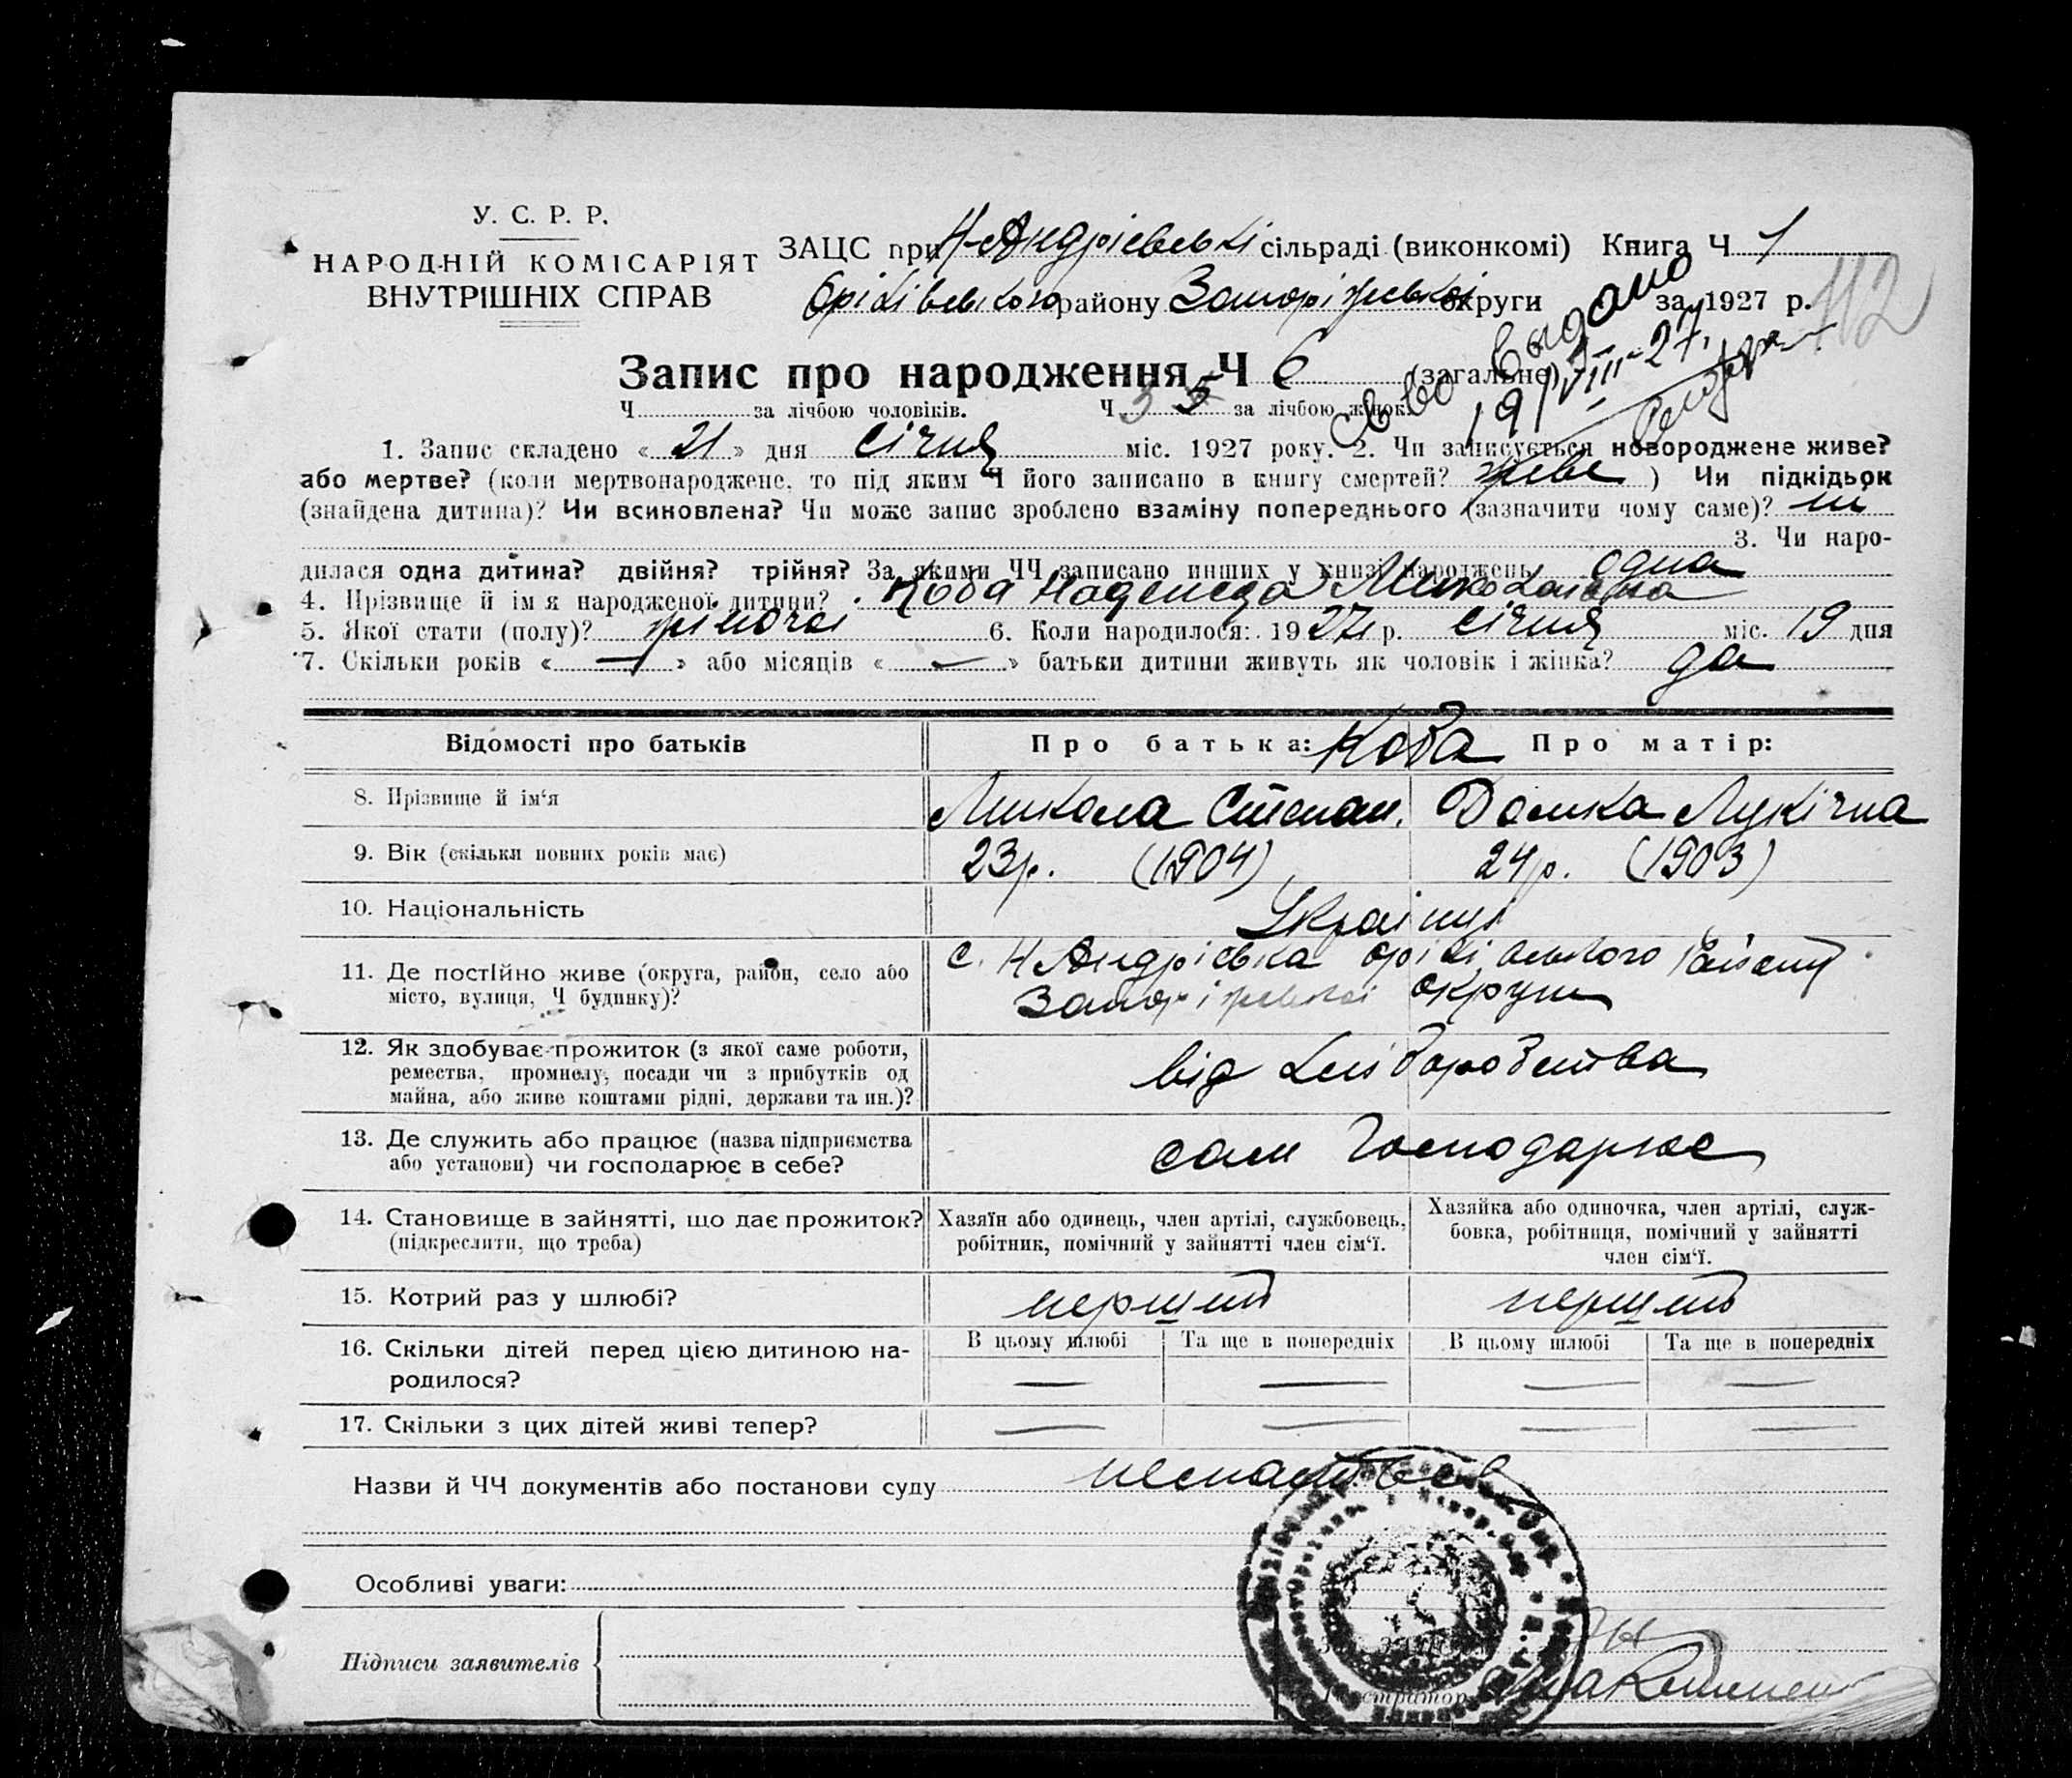 У. С. Р. Р.
НАРОДНІЙ КОМІСАРІЯТ
ВНУТРІШНІХ СПРАВ
ЗАЦС при Н-Андріевські сільраді (виконкомі) Книга Ч 1
Оріхівського району Запоріжської округи за 1927 р.
112
Запис про народження Ч 6 (загальне)
Ч за лічбою чоловіків. Ч 3 5 за лічбою жінок.
выдано
19/VIII-27.
1. Запис складено « 21 » дня січня міс. 1927 року. 2. Чи записується новороджене живе?
або мертве? (коли мертвонароджене, то під яким Ч його записано в книгу смертей? живе ) Чи підкідьок
(знайдена дитина)? Чи всиновлена? Чи може запис зроблено взаміну попереднього (зазначити чому саме)? ні
3. Чи наро-
дилася одна дитина? двійня? трійня? За якими ЧЧ записано инших у книзі народжень одна
4. Прізвище й імя народженої дитини? Коба Надежда Миколаівна
5. Якої стати (полу)? жіночоі 6. Коли народилося: 1927 р. січня міс. 19 дня
7. Скільки років « — » або місяців « — » батьки дитини живуть як чоловік і жінка? да
Відомості про батьків
Про батька: Коба Про матір:
8. Прізвище й ім‘я Микола Степан. Домка Лукічна
9. Вік (скільки повних років має) 23р. (1904) 24р. (1903)
10. Національність Украінці
11. Де постійно живе (округа, район, село або
місто, вулиця, Ч будинку)?
с. Н Андріевка оріхівського району
Запоріжськоі округи
12. Як здобуває прожиток (з якої саме роботи,
ремества, промислу, посади чи з прибутків од
майна, або живе коштами рідні, держави та ин.)?
від хліборобства
13. Де служить або працює (назва підприємства
або установи) чи господарює в себе?
сами господарюе
14. Становище в зайнятті, що дає прожиток?
(підкреслити, що треба)
Хазяїн або одинець, член артілі, службовець,
робітник, помічний у зайнятті член сім‘ї.
Хазяйка або одиночка, член артілі, служ-
бовка, робітниця, помічний у зайнятті
член сім‘ї.
15. Котрий раз у шлюбі? перший перший
16. Скільки дітей перед цією дитиною на-
родилося?
В цьому шлюбі Та ще в попередніх В цьому шлюбі Та ще в попередніх
— — — —
17. Скільки з цих дітей живі тепер? — — — —
Назви й ЧЧ документів або постанови суду
Особливі уваги:
Підписи заявителів